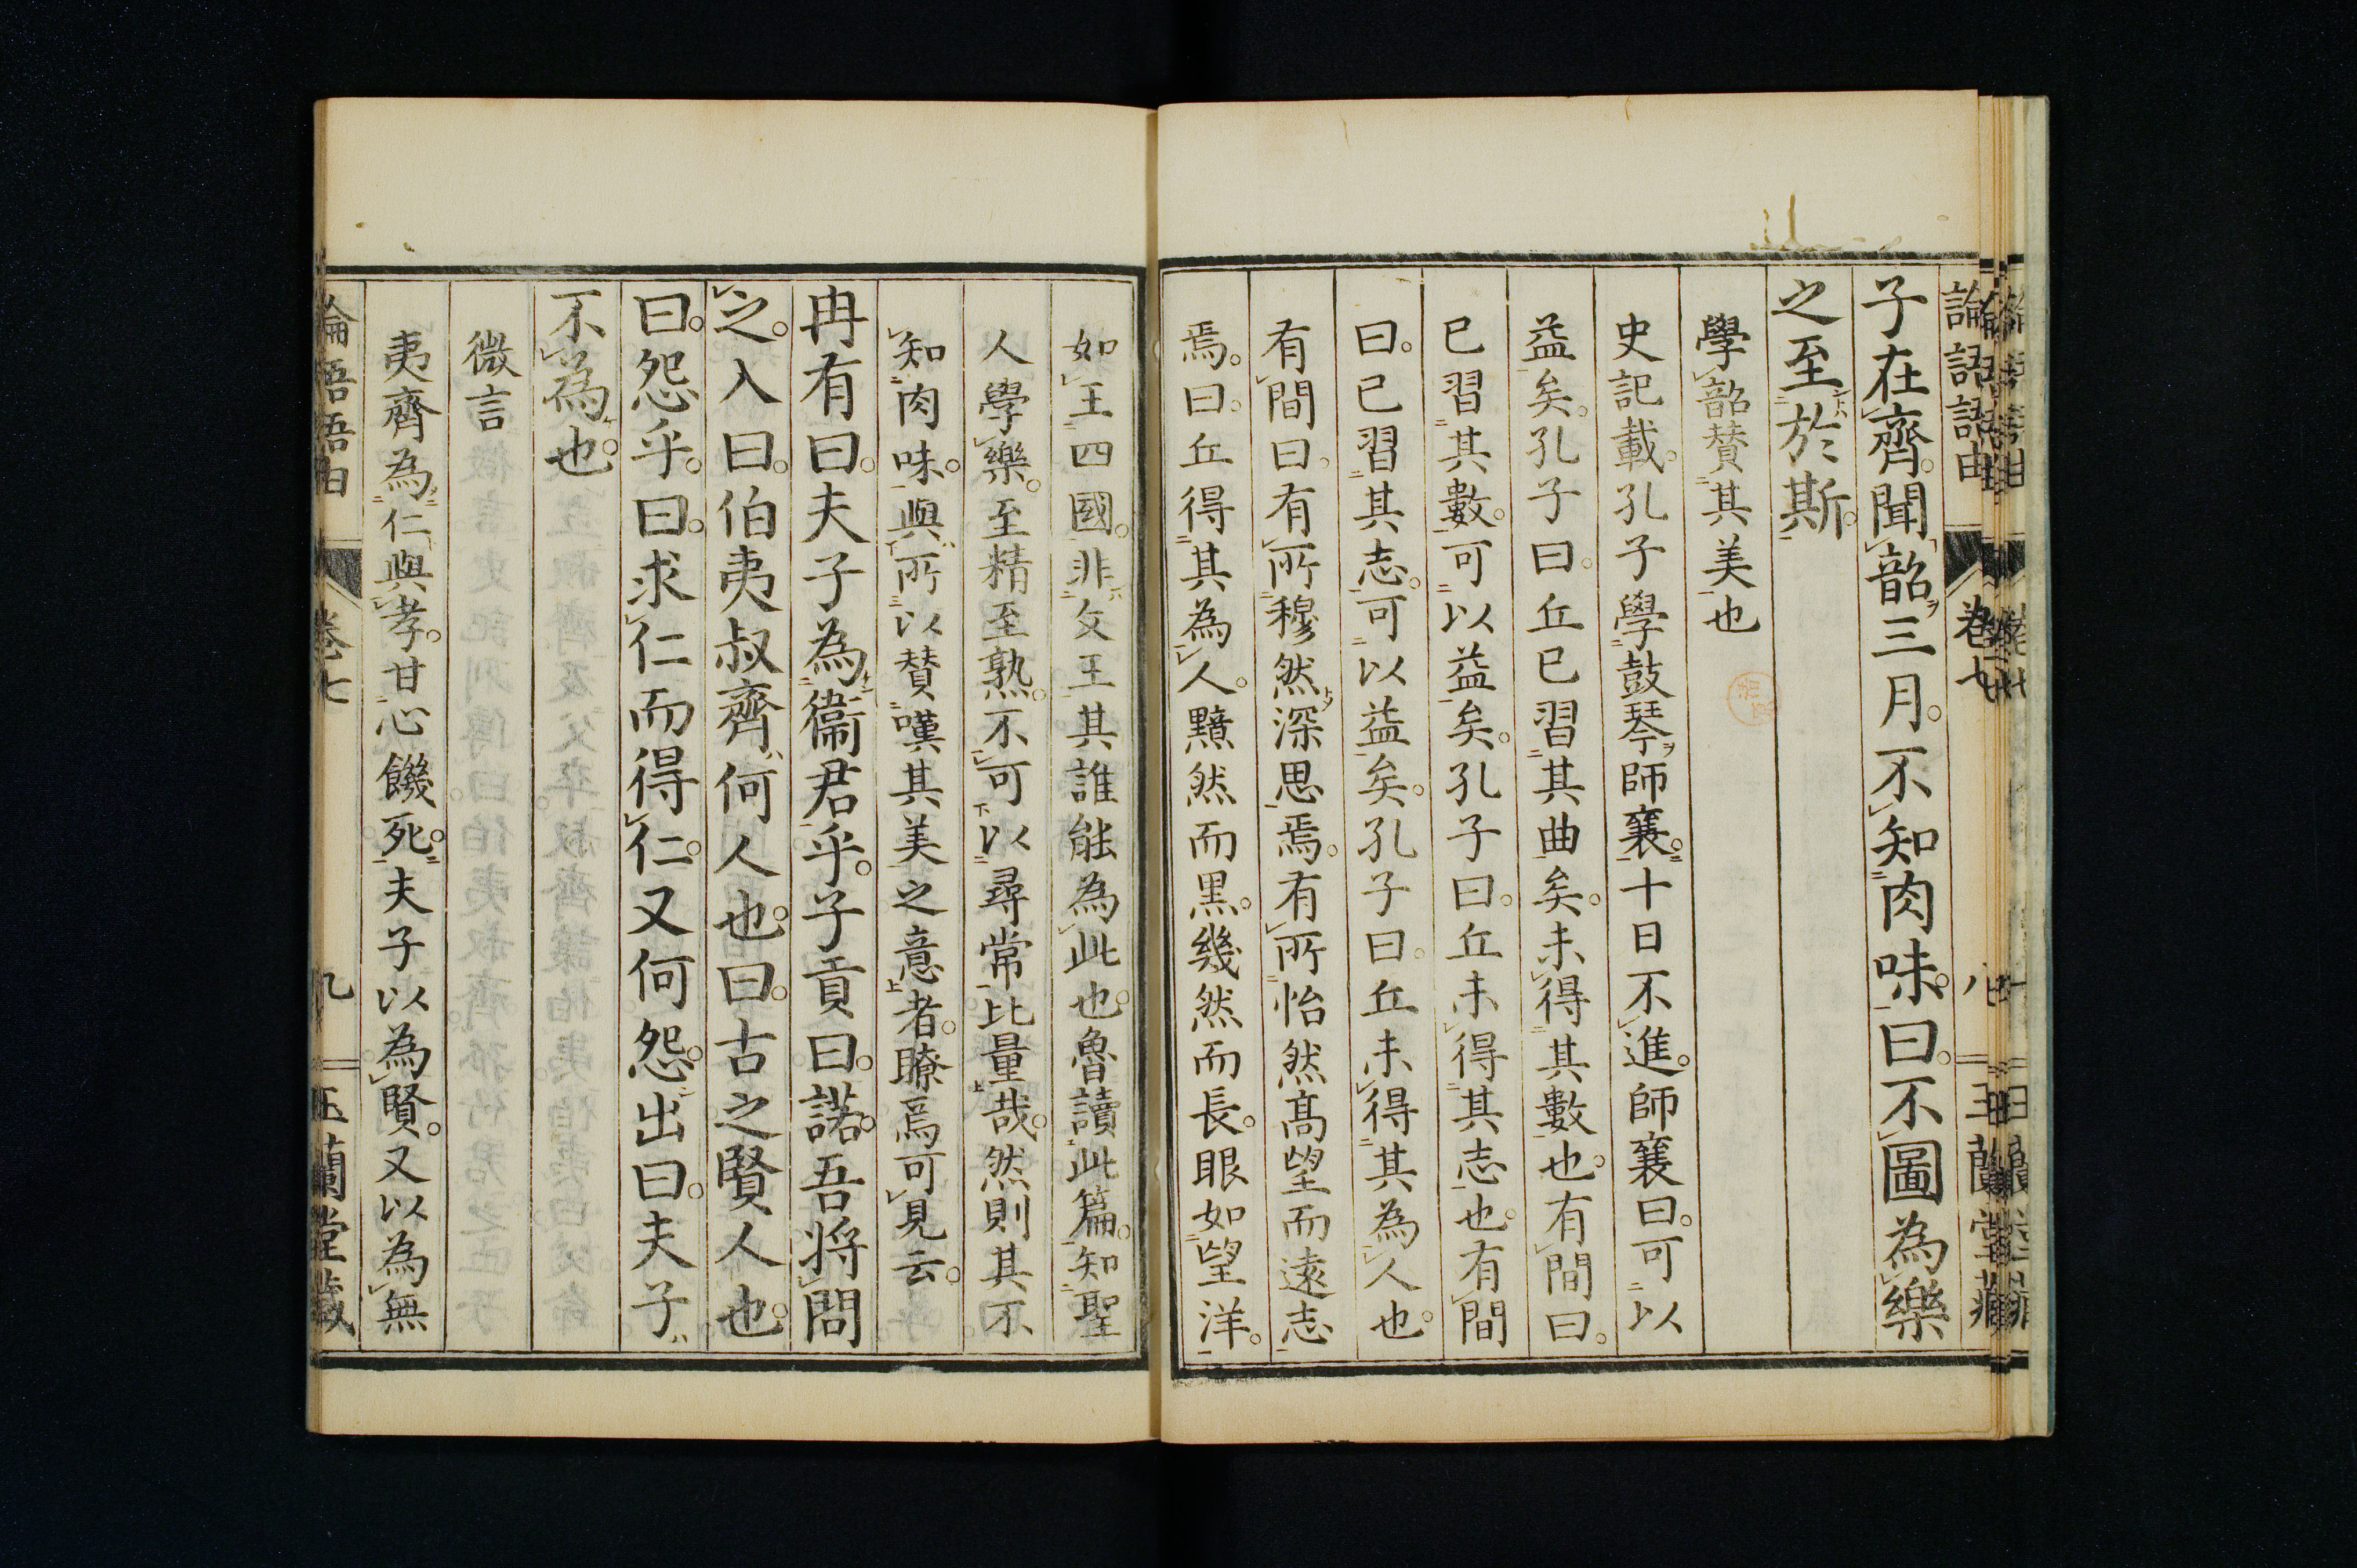 論語語由 卷七 八 玉蘭堂藏
子在齊。聞韶三月。不知肉味。曰。不圖為樂
之至於斯。
學韶贊其美也
史記載。孔子學鼓琴師襄。十日不進。師襄曰。可以
益矣。孔子曰。丘已習其曲矣。未得其數也。有間曰。
已習其數。可以益矣。孔子曰。丘未得其志也。有間
曰。已習其志。可以益矣。孔子曰。丘未得其為人也。
有間曰。有所穆然深思焉。有所怡然高望而遠志
焉。曰。丘得其為人。黯然而黑。幾然而長。眼如望洋。
如王四國。非文王其誰能為此也。魯讀此篇。知聖
人學樂。至精至熟。不可以尋常比量哉。然則其不
知肉味。與所以贊嘆其美之意者。瞭焉可見云。
冉有曰。夫子為衞君乎。子貢曰。諾。吾將問
之。入曰。伯夷叔齊何人也。曰。古之賢人也。
曰。怨乎。曰。求仁而得仁。又何怨。出曰。夫子
不為也。
微言
夷齊為仁與孝。甘心饑死。夫子以為賢。又以為無
論語語由 卷七 九 玉蘭堂藏